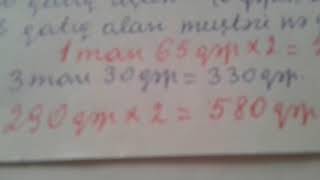 qatıq alan müştəri nə q
1 man 65 qəp × 2 =
3 man 30 qəp = 330 qəp.
290 qəp × 2 = 580 qəp